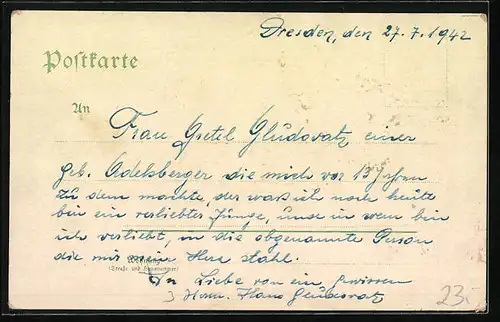 Dresden, den 27.7.1942
Postkarte
An
Frau Gretel Gludovatz einer
geb. Adelsberger die mich vor 13 Jahren
zu dem machte, der was ich noch heute
bin ein verliebter Junge, und in wem bin
ich verliebt, in die obgenannte Person
die mir mein Herz stahl.
Wohnung
(Straße und Hausnummer)
In Liebe von ein gewissen
Herrn Hans Gludovatz
23.-